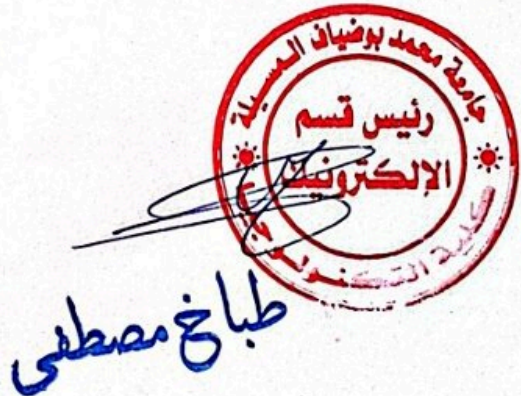 جامعة محمد بوضياف المسيلة
رئيس قسم
الإلكترونيك
كلية التكنولوجيا
طباخ مصطفى